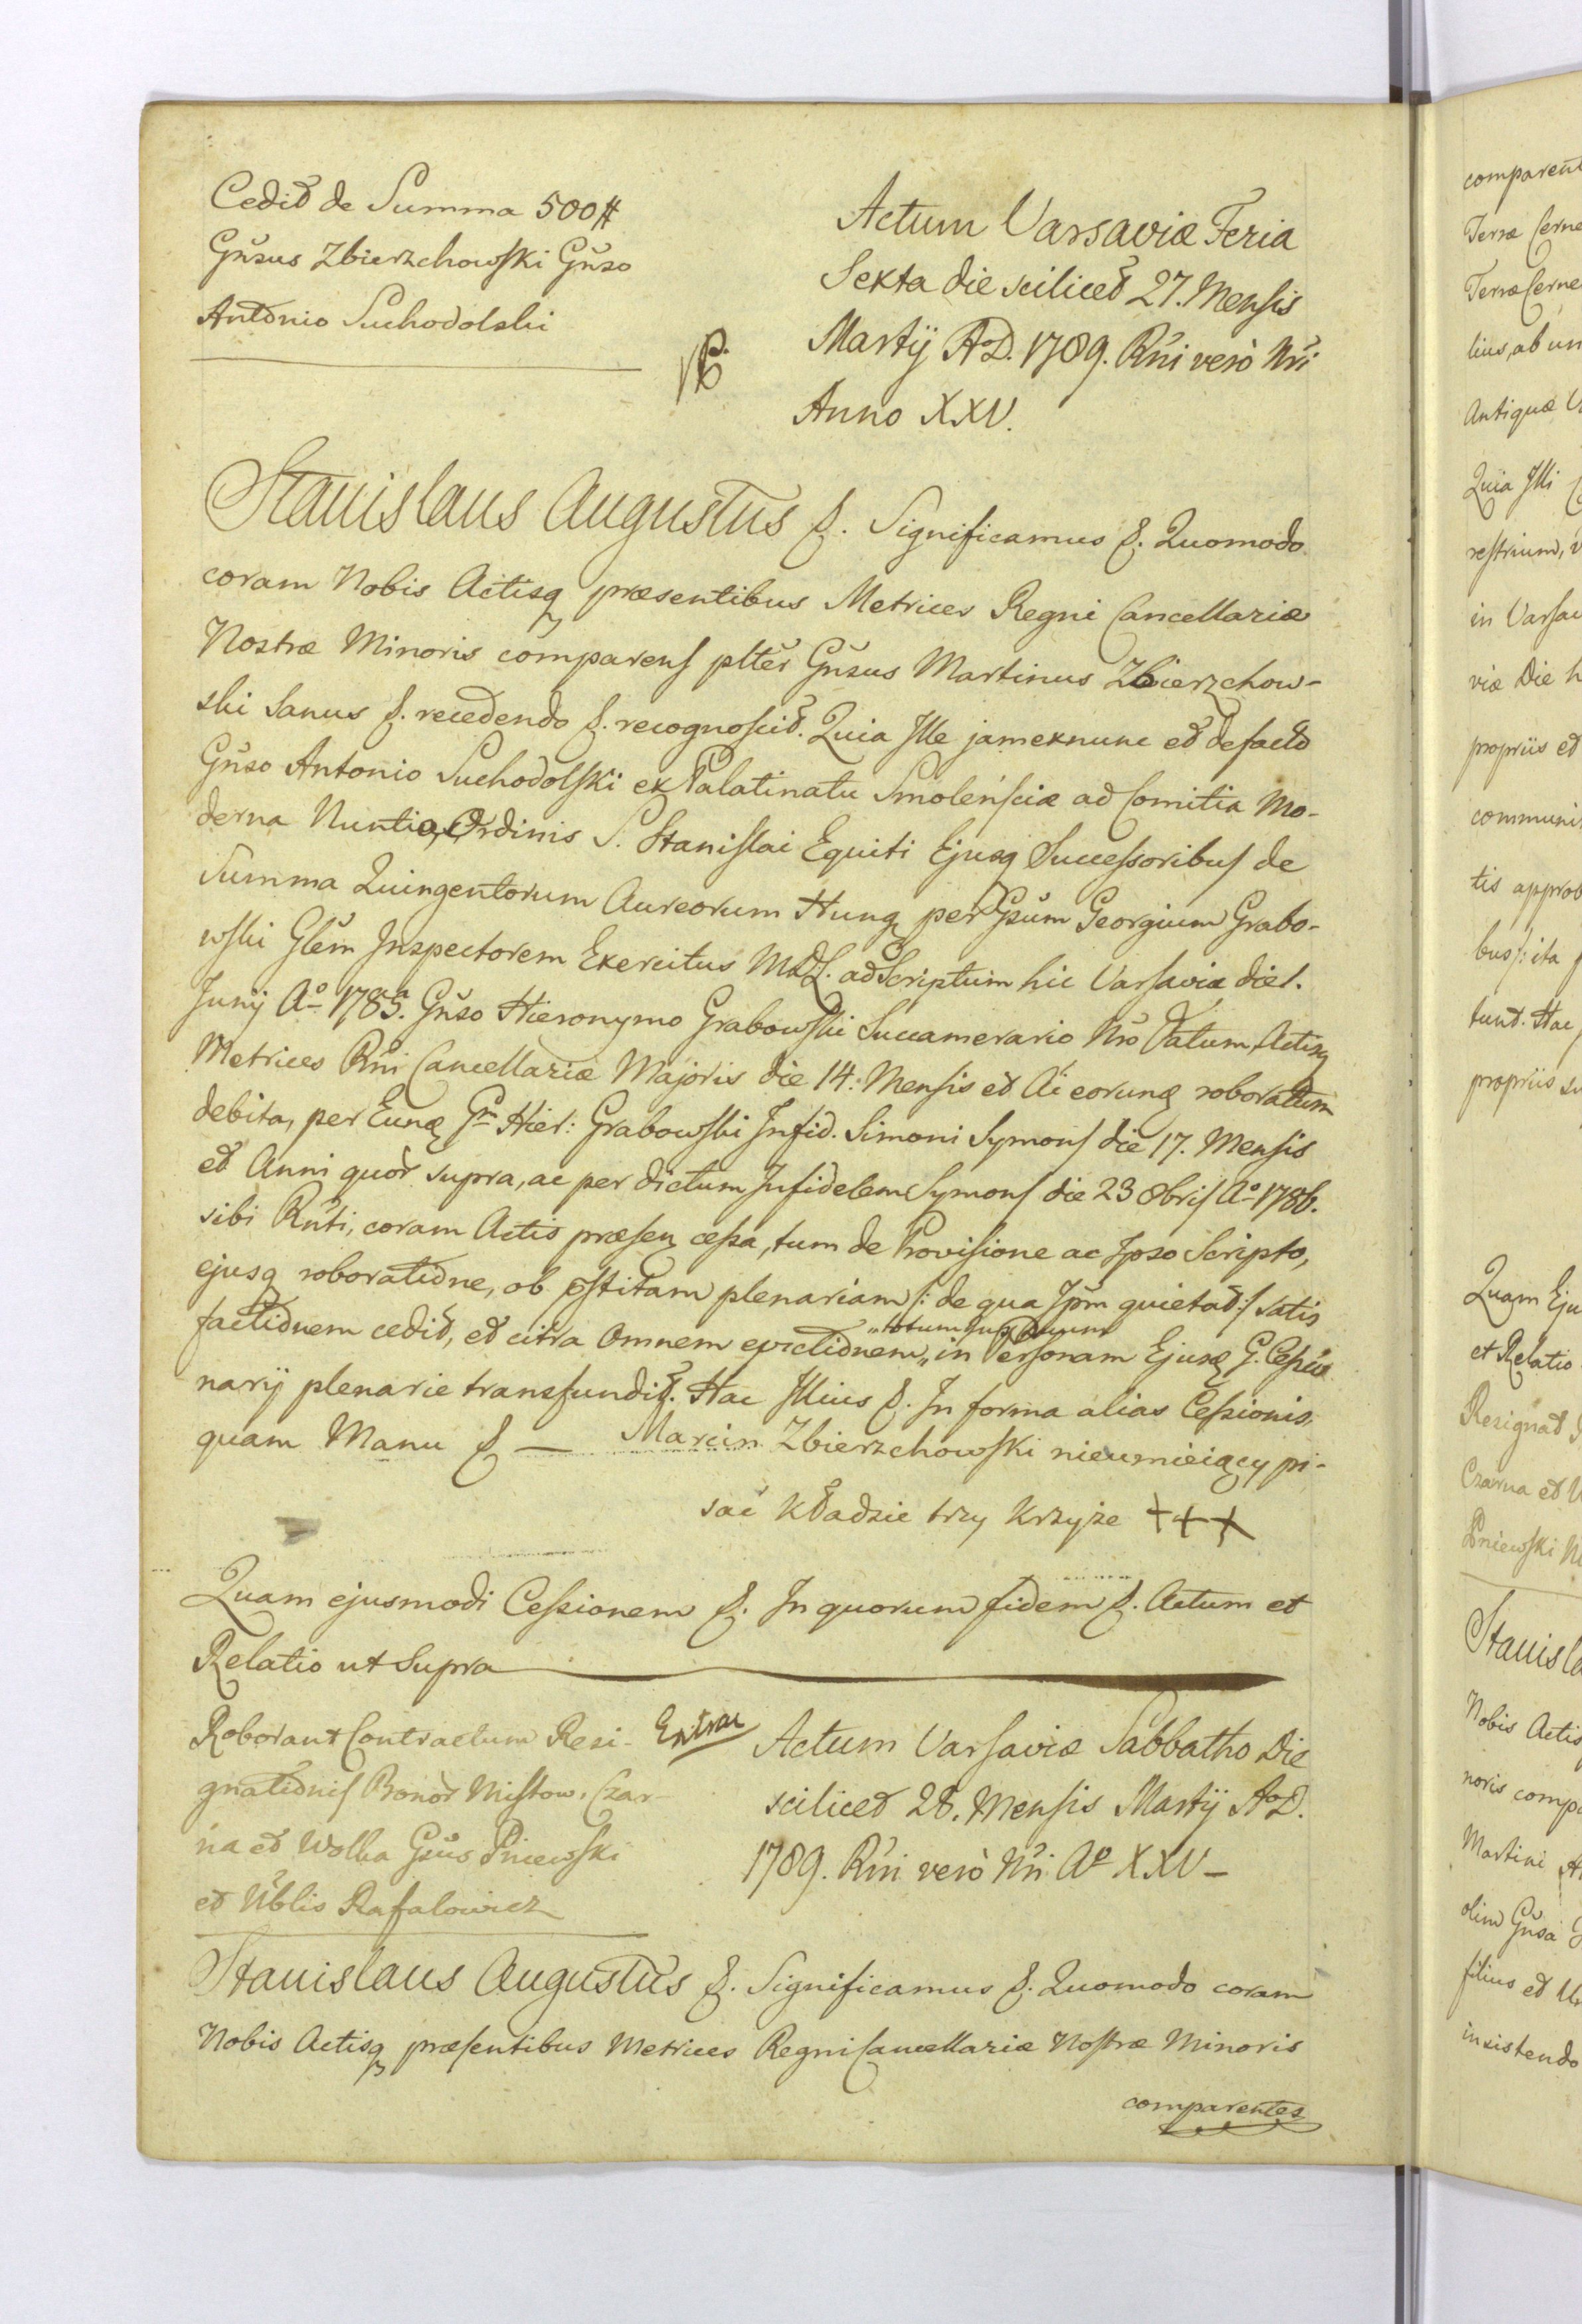 Cedit de Summa 500 #
Gn̆sus Zbierzchowſki Gn̆so
Antonio Suchodolski
Actum Varsaviæ Feria
Sexta die scilicet 27. Menſis
Martij A.D. 1789. Rn̆i verò Nr̆i
Anno XXV.
Stanislaus Augustus &. Significamus &. Quomodo
coram Nobis Actisq præsentibus Metrices Regni Cancellariæ
Nostræ Minoris comparenſ pltĕr Gn̆sus Martinus Zbierzchow-
ski Sanus &. recedendo &. recognoſcit. Quia Ille jam ex nunc et de facto
Gn̆so Antonio Suchodolſki ex Palatinatu Smolenſciæ ad Comitia Mo-
derna Nuntio, Ordinis S. Staniſlai Equiti Ejusq Succeſsoribuſ de
Summa Quingentorum Aureorum Hung per Gsŭm Georgium Grabo-
wſki Glĕm Inspectorem Exercitus MDL. ad Scriptum hic Varſaviæ die 1.
Junij A⁰ 1785. Gn̆so Hieronymo Grabowſki Succamerario Nr̆o datum, Actisq
Metrices Rn̆i Cancellariæ Majoris die 14. Menſis et Ai eorunq roboratum
debita, per Eunq Gm Hier: Grabowſki Infid. Simoni Symonſ die 17. Menſis
et Anni quor̀ supra, ac per dictum Infidelem Symonſ die 23 8briſ A⁰ 1786.
sibi Rn̆ti, coram Actis præſenq ceſsa, tum de Proviſione ac Ipso Scripto,
ejusq roboratione, ob p̄ſtitam plenariam /: de qua Ipm̆ quietat :/ satis
factionem cedit, et citra omnem evictionem „totum jus suum„ in Perſonam Ejusq G. Ceſsio
narij plenarie transfundit. Hac Illius &. In forma alias Ceſsionis,
quam Manu & — Marcin Zbierzchowſki nieumieiący pi-
sać kładzie trzy krzyże + + +
Quam ejusmodi Ceſsionem &. In quorum fidem &. Actum et
Relatio ut Supra
Roborant Contractum Resi-
gnationiſ Bonor̀ Miſtow, Czar-
na et Wolka Gsŭs Pniewſki
et Nb̆lis Rafalowicz
Extrac
Actum Varſaviæ Sabbatho Die
scilicet 28. Menſis Martij A.D.
1789. Rn̆i verò Nr̆i A⁰ XXV –
Stanislaus Augustus &. Significamus &. Quomodo coram
Nobis Actisq præſentibus Metrices Regni Cancellariæ Noſtræ Minoris
comparentes
comparent
Terræ Cerne
Terræ Cerne
lius, ab un
Antiquæ
Quia Illi
reſtrium,
in Varſav
viæ Die h
propriis et
communi
tis approb
bus /: ita
tunt. Hac
propriis su
Quam Eju
et Relatio
Resignat
Czarna et W
Pniewſki
Stanisla
Nobis Actis
noris comp
Martini
olim Gn̆sa
filius et
insistendo